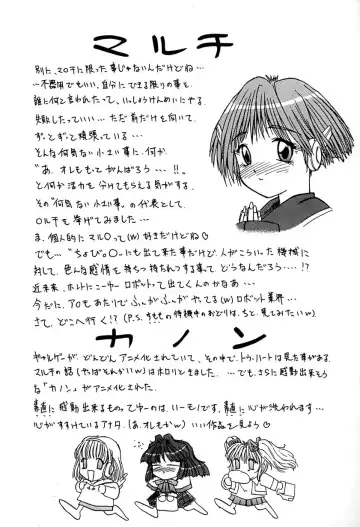 マルチ
別に、マロチに限った事じゃないんだけどね…
…不器用でもいい、自分にできる限りの事を
誰に何と言われたって、いっしょうけんめいにやる。
失敗したっていい…ただ前だけを向いて、
ずーとずーと頑張っている…
そんな何気ない小さい事に、何か
"あ、オレももっとがんばろう…!!"
と何か活力を分けてもらえる気がする。
その"何気ない小さい事"の代表として、
〇ルチを挙げてみました…
ま、個人的にマル〇って(w)好きだけどね♡
でも…"ちょび"。〇にも出て来た事だけど、人がこういった機械に
対して、色んな感情を持つ持たれつする事て、どうなんだろう…!?
近未来、ホントにこーゆーロボットって出てくんのかなあ…
今だに、アロもあたりでふんがふんがヤてる(w)ロボット業界…
さて、どこへ行く!? (P.S. すももの待機中のおどりは、ちと、見てみたいw)
カノン
ギャルゲーが、どんどんアニメ化されていて、その中で、トゥ・ハートは見た事がある。
マルチの話(やぱそれかいw)はホロリときました。…でも、さらに感動出来そうな
「カノン」がアニメ化された。
素直に感動出来るものってーのは、いーモノです、素直に心が洗われます…
心がすすけているアナタ(あ、オレもかw) いい作品を見よう♡